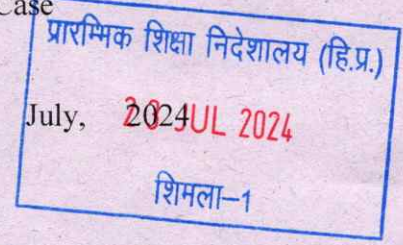 Case
प्रारम्भिक शिक्षा निदेशालय (हि.प्र.)
July, 2024 JUL 2024
शिमला-1